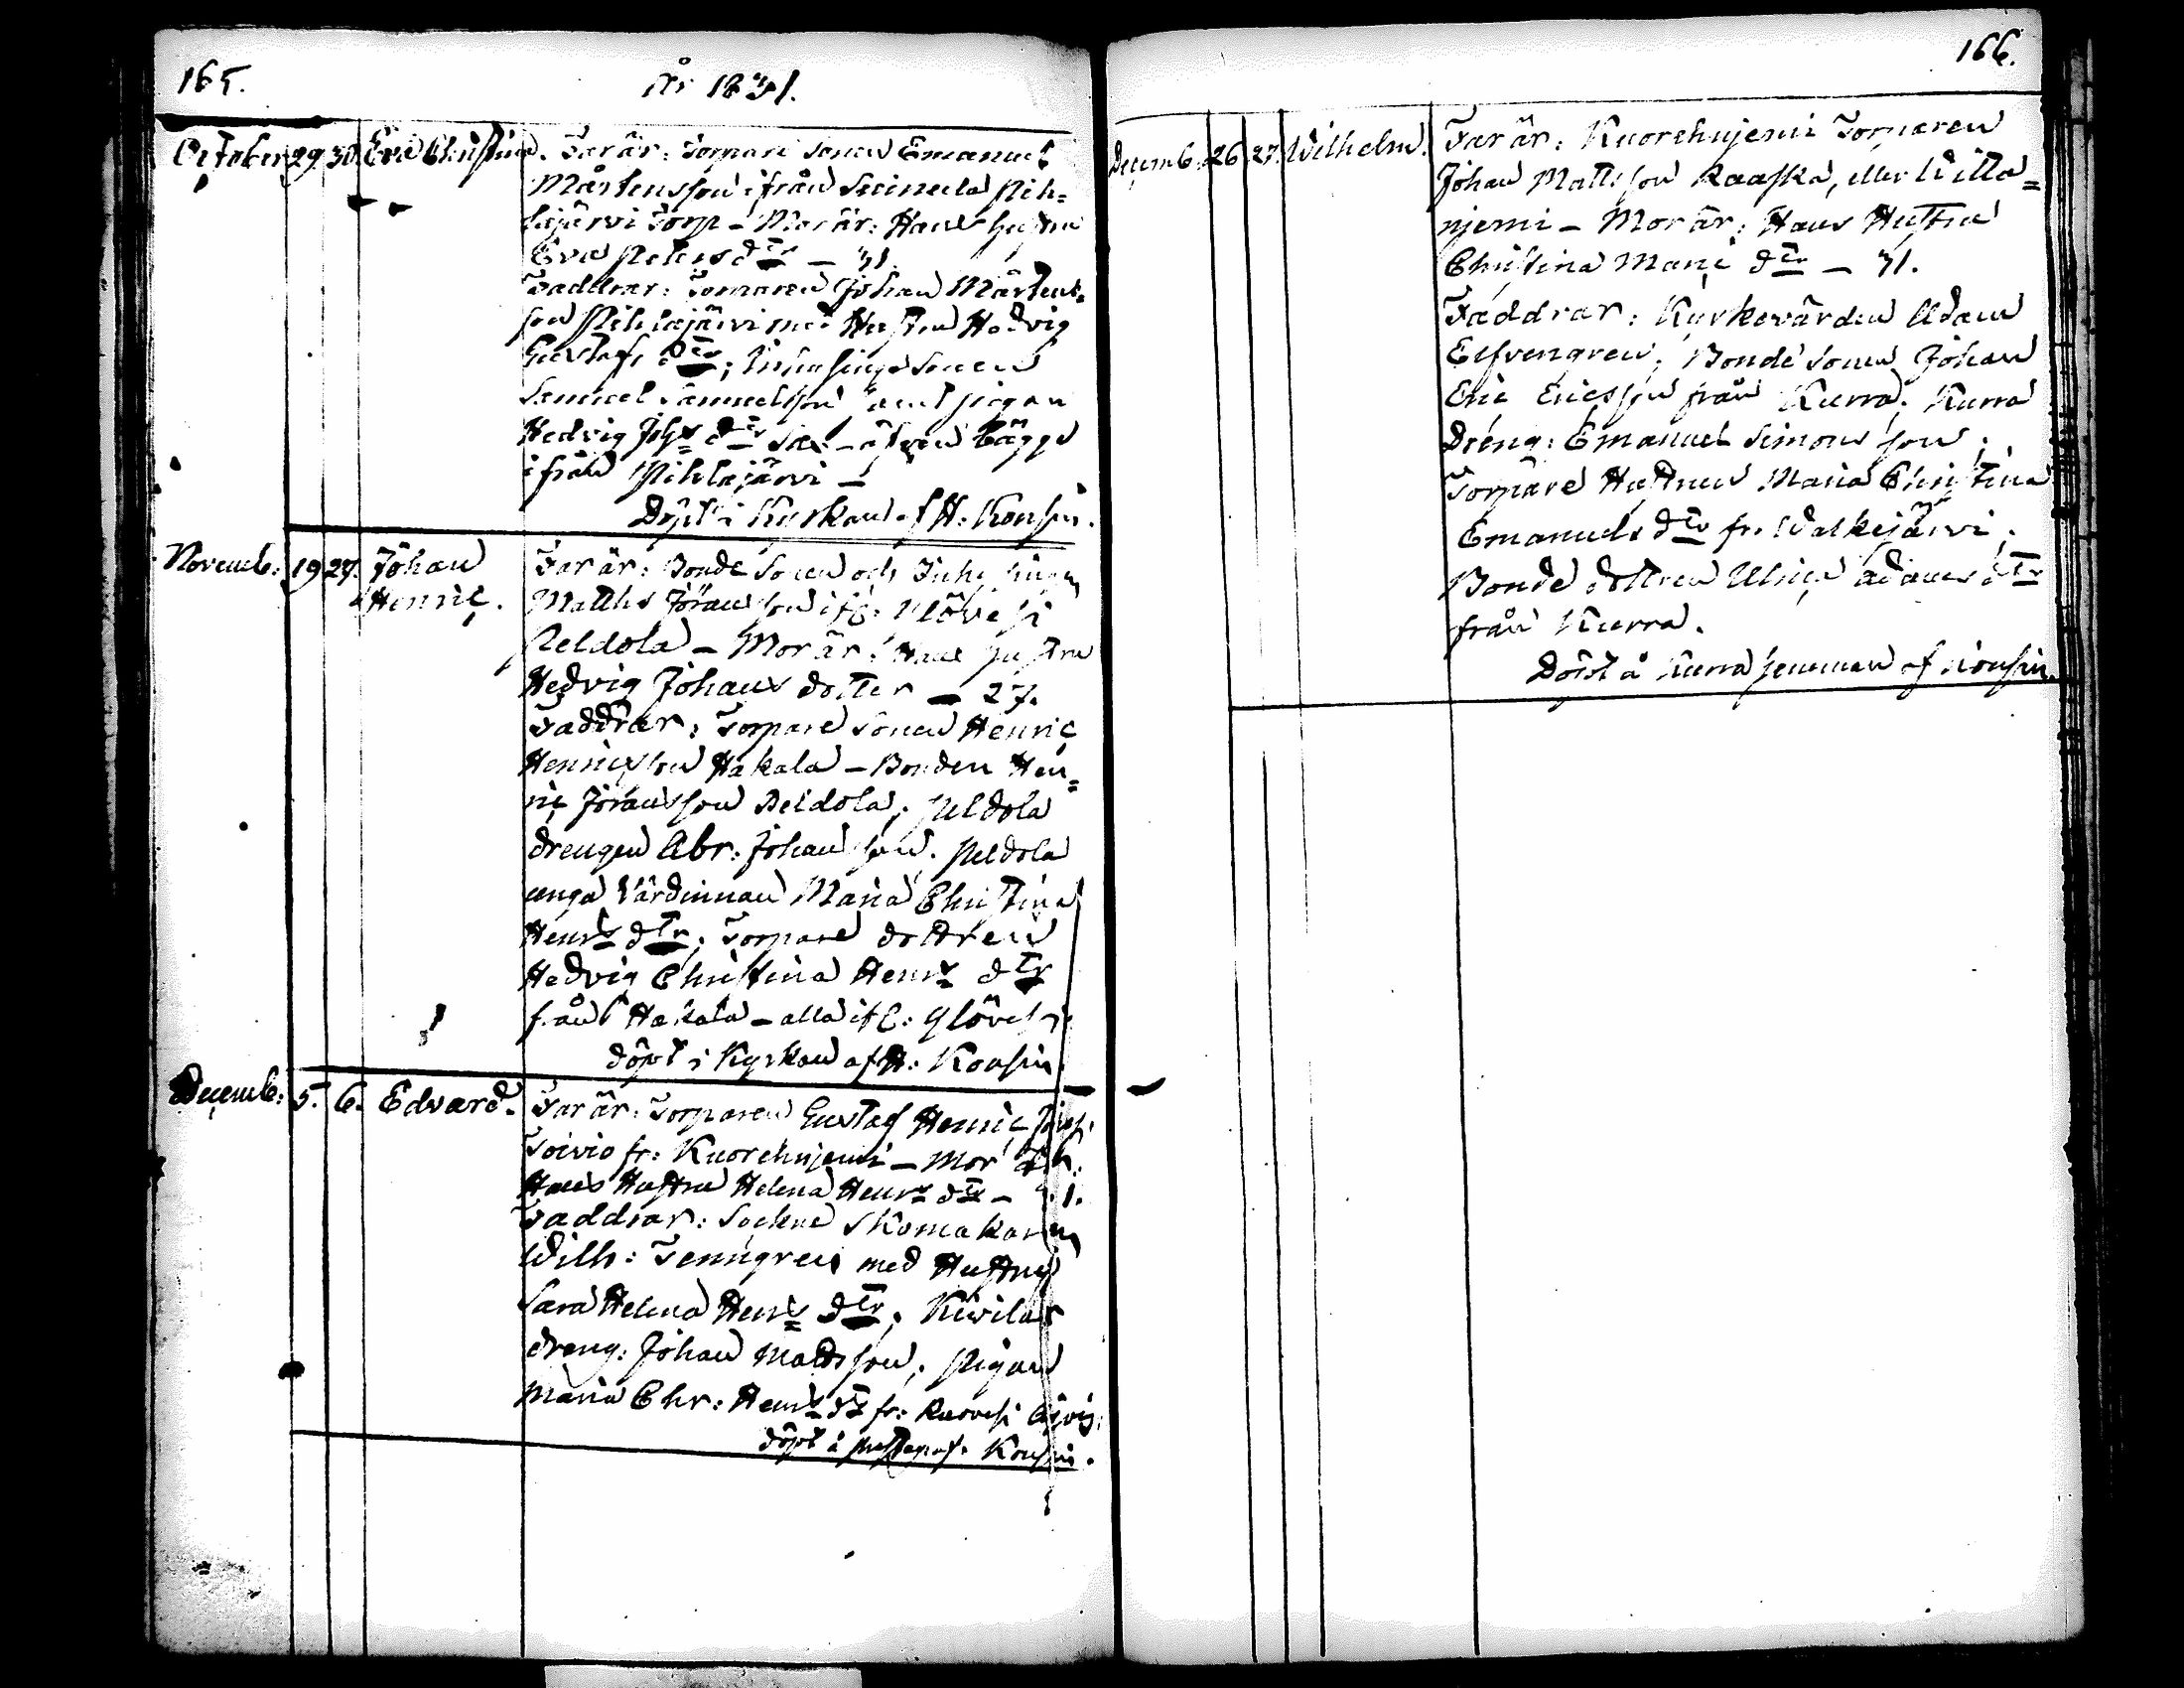 165.
År 1831.
October 29. 30. Eva Christina. Far är: Torpare sonen Emanuel
Mårtensson ifrån Pih=
lajärvi Torp – Mor är: Hans hustru
Eva Peters dr – 31.
Faddrar: Torparen Johan Mårtens=
son Pihlajärvi med Hustru Hedvig
Gustafs dr; Inhysinge sonen
Samuel Samuelsson samt pigan
Hedvig Johs dr bägge
ifrån Pihlajärvi –
Döpt i Kyrkan af H: Konsin.
Novemb: 19 27. Johan
Henric.
Far är: Bonde sonen och Inhysingen
Matths Jöransson ifr:
Peldola – Mor är: Hans hustru
Hedvig Johans dotter – 27.
Faddrar: Torpare sonen Henric
Henricsson Hakala – Bonden Hen=
ric Jöransson Peldola; Peldola
drengen Abr: Johansson. Peldola
unga Värdinnan Maria Christina
Henrs dtr; Torpare dottren
Hedvig Christina Henrs dtr
från Hakala – alla
döpt i Kyrkan af H: Konsin
Decemb: 5. 6. Edvard. Far är: Torparen Gustaf Henric
Toivio fr: Kuorehnjemi – Mor är:
Hans Hustru Helena Henrs dtr – 31.
Faddrar: Sockne skomakaren
Wilh: Tenngren med Hustru
Sara Helena Henrs dtr; Kivilax
dreng: Johan Mattsson; Pigan
Maria Chr: Henrs dr fr: Ruovesi
döpt å Konsin.
166.
Decemb: 26. 27. Wilhelm. Far är: Kuorehnjemi Torparen
Johan Mattsson Raaska, eller Lilla=
njemi – Mor är: Hans Hustru
Christina Mari dtr – 31.
Faddrar: Kyrkovärden Adam
Elfvengren; Bonde sonen Johan
Eric Ericsson från Kurra; Kurra
Dreng: Emanuel Simonsson;
Torpare Hustrun Maria Christina
Emanuels dtr fr: Walkejärvi;
Bonde dottren Ulrica Adams dtr
från Kurra.
Döpt å Kurra hemman af Konsin.